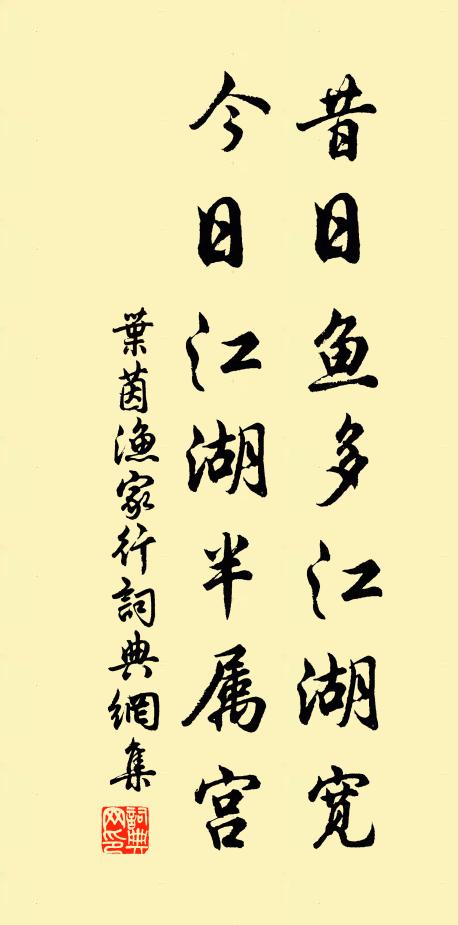 昔日鱼多江湖宽
今日江湖半属宫
葉茵漁家行詞典網集
詞典网印